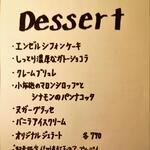 Dessert
・エンゼルシフォンケーキ
・しっとり濃厚なガトーショコラ
・クレームブリュレ
・小布施のマロンシロップと
シナモンのパンナコッタ
・ヌガーグラッセ
・バニラアイスクリーム
・オリジナルジェラート ¥770